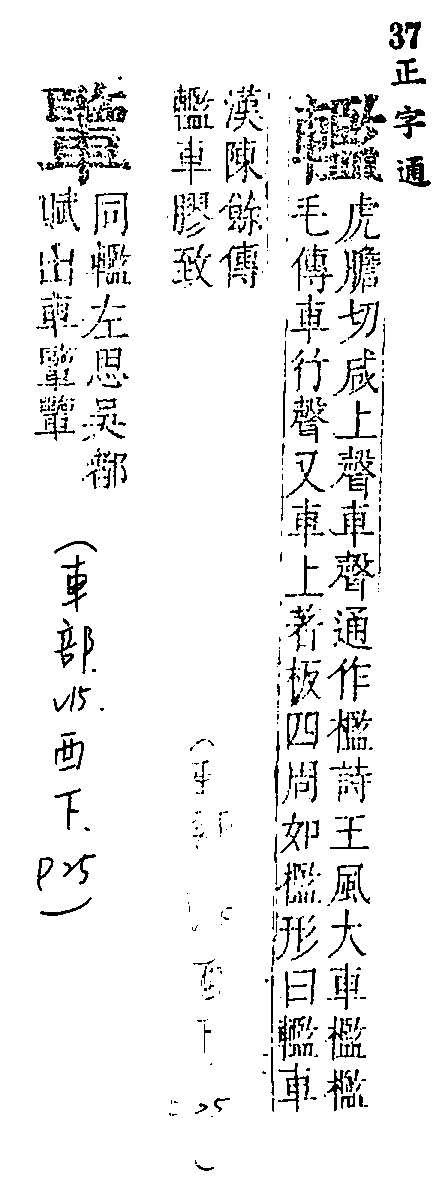 37正字通
轞
虎膽切咸上聲車聲通作檻詩王風大車檻檻
毛傳車行聲又車上著板四周如檻形曰轞車
漢陳餘傳
轞車膠致
(車部 V15. 酉下. P25)
同轞左思吳都
賦出車㔋㔋
(車部. V15. 酉下. P25)